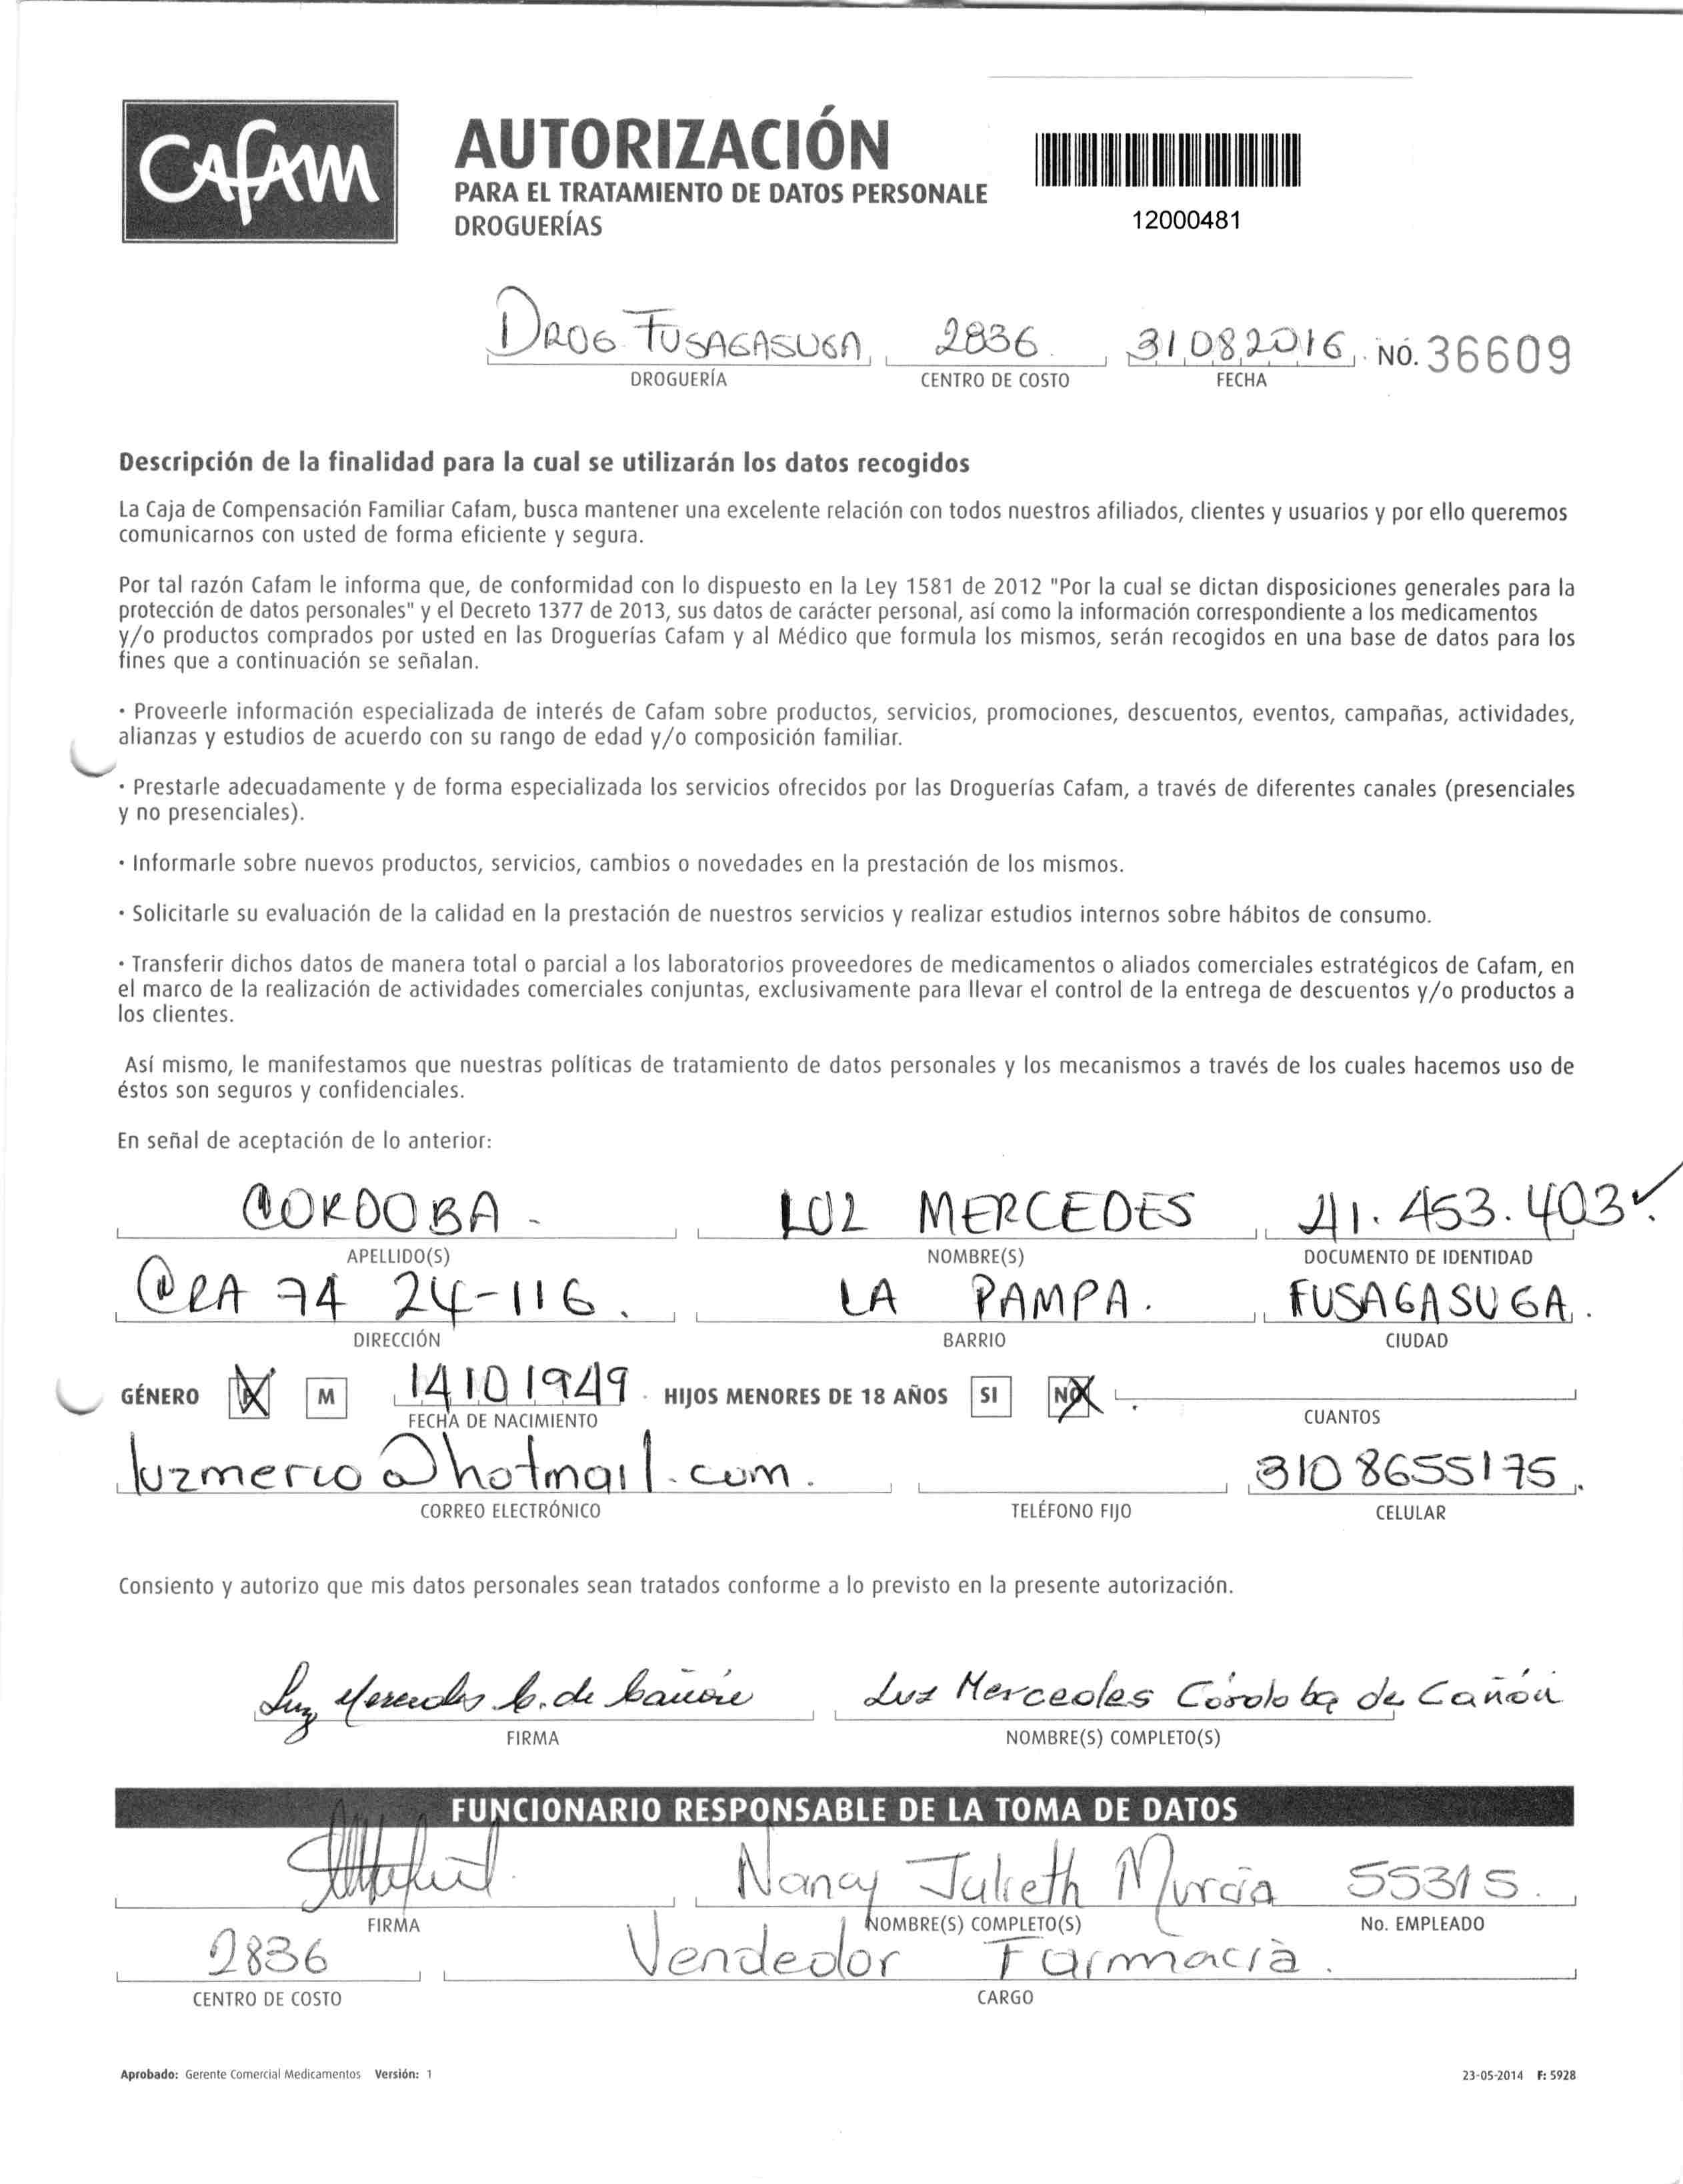 CAFAM
AUTORIZACIÓN
PARA EL TRATAMIENTO DE DATOS PERSONALE
DROGUERÍAS
12000481
DROG FUSAGASUGA 2836 31082016 NO. 36609
DROGUERÍA CENTRO DE COSTO FECHA
Descripción de la finalidad para la cual se utilizarán los datos recogidos
La Caja de Compensación Familiar Cafam, busca mantener una excelente relación con todos nuestros afiliados, clientes y usuarios y por ello queremos
comunicarnos con usted de forma eficiente y segura.
Por tal razón Cafam le informa que, de conformidad con lo dispuesto en la Ley 1581 de 2012 "Por la cual se dictan disposiciones generales para la
protección de datos personales" y el Decreto 1377 de 2013, sus datos de carácter personal, así como la información correspondiente a los medicamentos
y/o productos comprados por usted en las Droguerías Cafam y al Médico que formula los mismos, serán recogidos en una base de datos para los
fines que a continuación se señalan.
· Proveerle información especializada de interés de Cafam sobre productos, servicios, promociones, descuentos, eventos, campañas, actividades,
alianzas y estudios de acuerdo con su rango de edad y/o composición familiar.
· Prestarle adecuadamente y de forma especializada los servicios ofrecidos por las Droguerías Cafam, a través de diferentes canales (presenciales
y no presenciales).
· Informarle sobre nuevos productos, servicios, cambios o novedades en la prestación de los mismos.
· Solicitarle su evaluación de la calidad en la prestación de nuestros servicios y realizar estudios internos sobre hábitos de consumo.
· Transferir dichos datos de manera total o parcial a los laboratorios proveedores de medicamentos o aliados comerciales estratégicos de Cafam, en
el marco de la realización de actividades comerciales conjuntas, exclusivamente para llevar el control de la entrega de descuentos y/o productos a
los clientes.
Así mismo, le manifestamos que nuestras políticas de tratamiento de datos personales y los mecanismos a través de los cuales hacemos uso de
éstos son seguros y confidenciales.
En señal de aceptación de lo anterior:
CORDOBA - LUZ MERCEDES 41.453.403
APELLIDO(S) NOMBRE(S) DOCUMENTO DE IDENTIDAD
CRA 74 24-116. LA PAMPA. FUSAGASUGA.
DIRECCIÓN BARRIO CIUDAD
GÉNERO F M 14101949 HIJOS MENORES DE 18 AÑOS SI NO
FECHA DE NACIMIENTO CUANTOS
luzmerco@hotmail.com. 3108655175.
CORREO ELECTRÓNICO TELÉFONO FIJO CELULAR
Consiento y autorizo que mis datos personales sean tratados conforme a lo previsto en la presente autorización.
Luz Mercedes C. de Cañón Luz Mercedes Córdoba de Cañón
FIRMA NOMBRE(S) COMPLETO(S)
FUNCIONARIO RESPONSABLE DE LA TOMA DE DATOS
Nancy Julieth Murcia 55315.
FIRMA NOMBRE(S) COMPLETO(S) No. EMPLEADO
2836 Vendedor Farmacia.
CENTRO DE COSTO CARGO
Aprobado: Gerente Comercial Medicamentos Versión: 1 23-05-2014 F: 5928